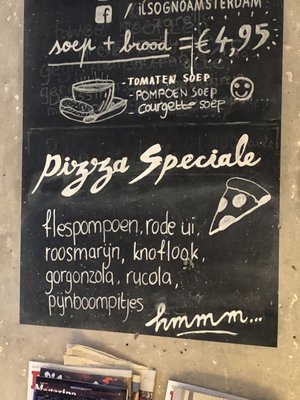 / ilSOGNOAMSTERDAM
soep + brood = € 4,95
- TOMATEN SOEP
- POMPOEN SOEP
- Courgette soep
Pizza Speciale
flespompoen, rode ui,
roosmarijn, knoflook,
gorgonzola, rucola,
pijnboompitjes
hmmm...
Magazine